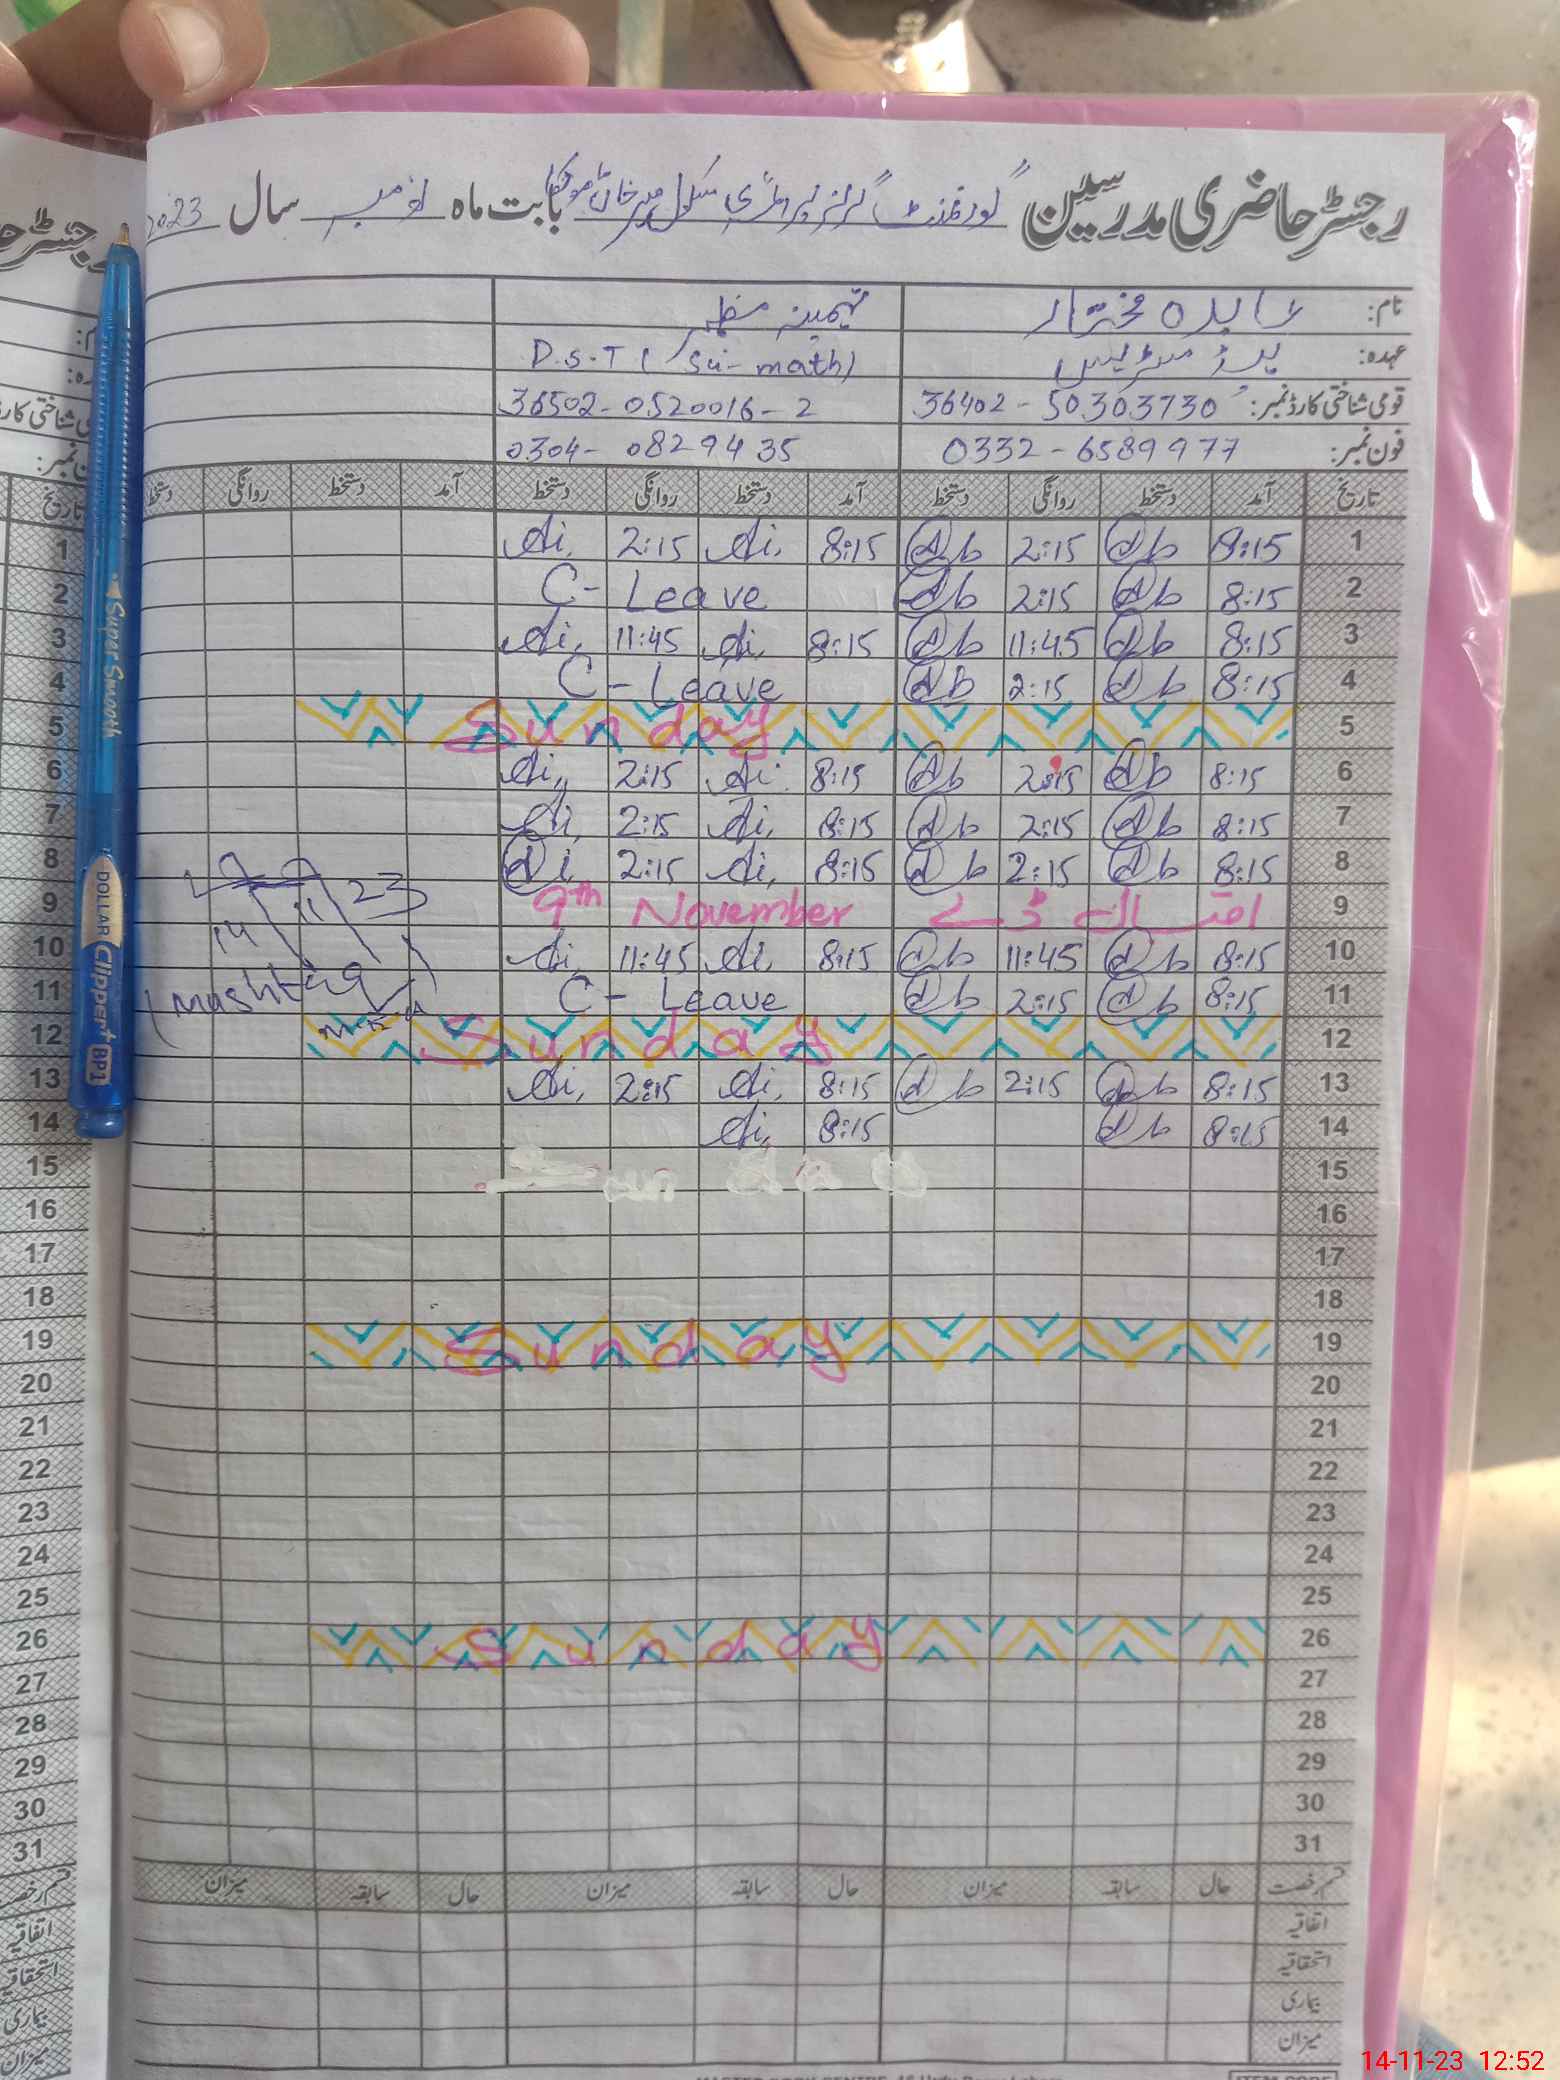 رجسٹر حاضری مدرسین گورنمنٹ گرلز پرائمری سکول میر خان موکل بابت ماہ نومبر سال 2023
نام: عابدہ مختار تہمینہ مظہر
عہدہ: ہیڈ مسٹریس D.S.T (Sci-math)
قومی شناختی کارڈ نمبر: 36402-50303730 36502-0520016-2
فون نمبر: 0332-6589977 0304-0829435
تاریخ آمد دستخط روانگی دستخط آمد دستخط روانگی دستخط آمد دستخط روانگی دستخط
1 8:15 db 2:15 db 8:15 di, 2:15 di,
2 8:15 db 2:15 db C- Leave
3 8:15 db 11:45 db 8:15 di, 11:45 di,
4 8:15 db 2:15 db C- Leave
5 Sunday
6 8:15 db 2:15 db 8:15 di, 2:15 di,
7 8:15 db 2:15 db 8:15 di, 2:15 di,
8 8:15 db 2:15 db 8:15 di, 2:15 di,
9 اقبال ڈے 9th November
10 8:15 db 11:45 db 8:15 di, 11:45 di,
11 8:15 db 2:15 db C- Leave
12 Sunday
13 8:15 db 2:15 db 8:15 di, 2:15 di,
14 8:15 db 8:15 di,
14 11 23
(Mashtaq)
15
16
17
18
19 Sunday
20
21
22
23
24
25
26 Sunday
27
28
29
30
31
قسم رخصت حال سابقہ میزان حال سابقہ میزان حال سابقہ میزان
اتفاقیہ
استحقاقیہ
بیماری
میزان
رجسٹر حا
تاریخ
1
2
3
4
5
6
7
8
9
10
11
12
13
14
15
16
17
18
19
20
21
22
23
24
25
26
27
28
29
30
31
قسم رخصت
اتفاقیہ
استحقاقیہ
بیماری
میزان
Super Smooth
DOLLAR Clipper+ BP1
ITEM CODE
14-11-23 12:52